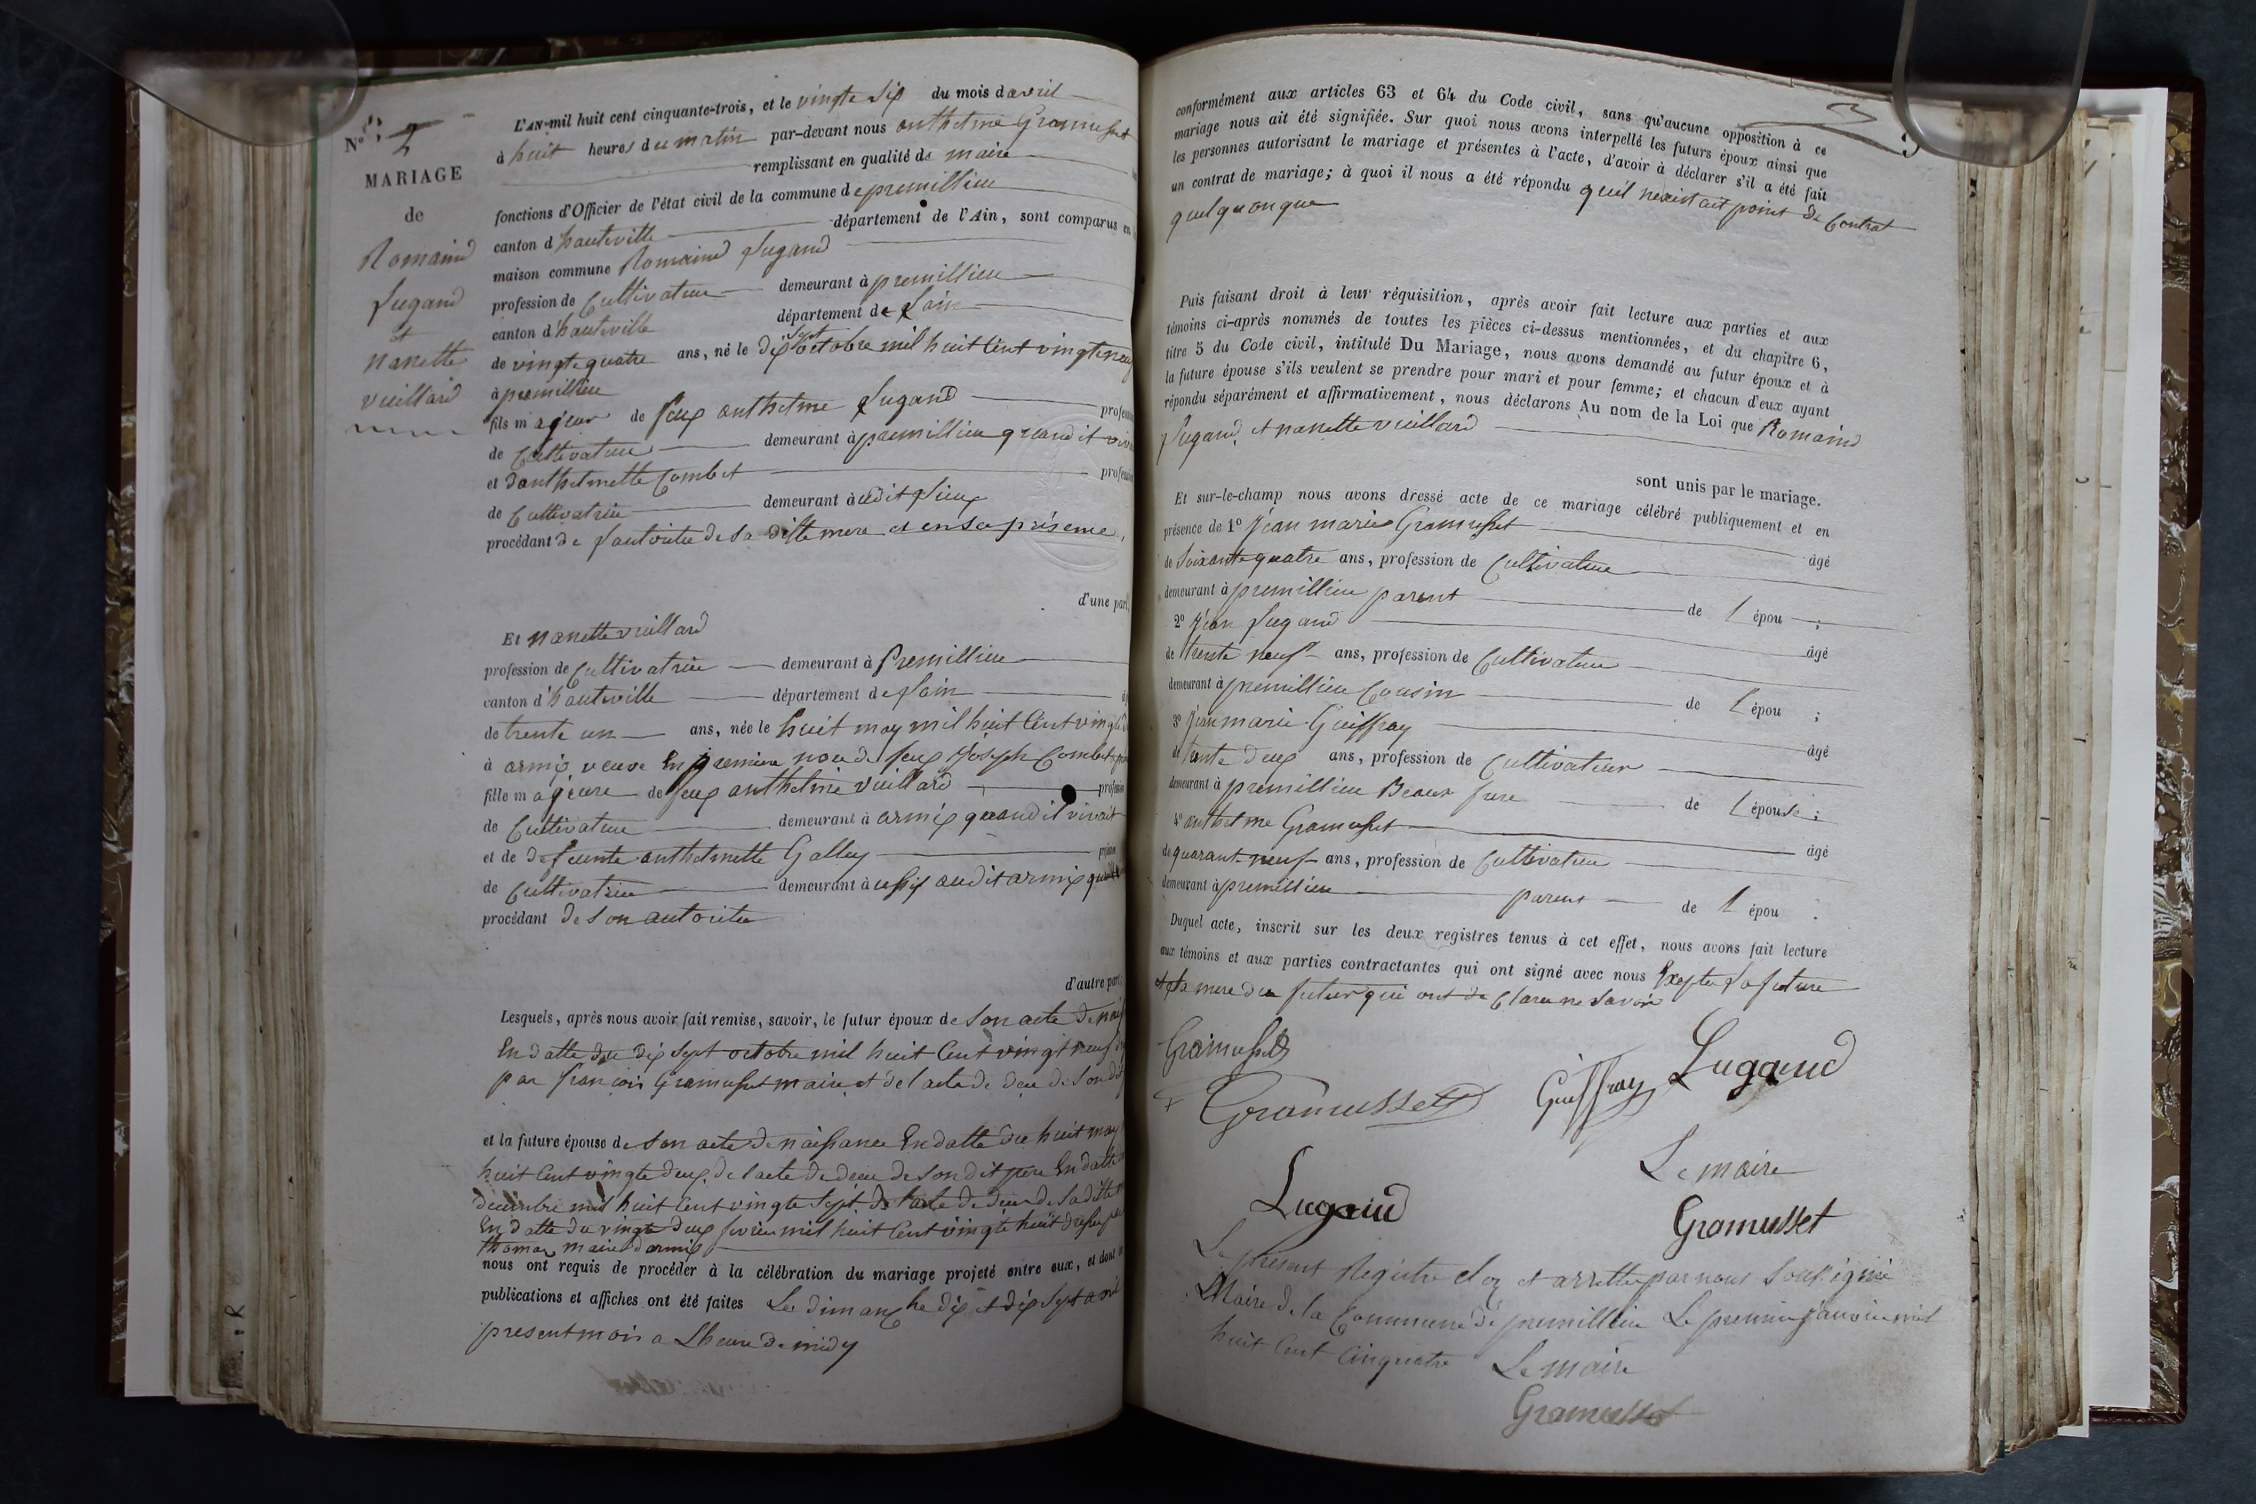 N° 2
MARIAGE
de
Romaind
Lugand
et
nanette
vieillard
L'AN mil huit cent cinquante-trois, et le vingte six du mois d'avril
à huit heures du matin par-devant nous anthelme Gramusset
remplissant en qualité de maire
fonctions d'Officier de l'état civil de la commune de premillieu
canton d'hauteville département de l'Ain, sont comparus en
maison commune Romaind Lugand
profession de Cultivateur demeurant à premillieu
canton d'hauteville département de Lain
de vingt quatre ans, né le dix sept octobre mil huit Cent vingt neuf
à premillieu
fils majeur de feux anthelme Lugand
de Cultivateur demeurant à premillieu quand it
et d'anthelmette Combet
de Cultivatrice demeurant à udit lieux
procédant de Lautoritee de sa ditte mere et en sa présence
d'une part,
Et nanette vieillard
profession de Cultivatrice demeurant à Premillieu
canton d'hauteville département de Lain
de trente un ans, née le huit may mil huit Cent vingt
à armix veuve En premiere de feux Joseph Combet
fille majeure de feux anthelme vieillard
de Cultivateur demeurant à armix quand it vivait
et de defeunte anthelmette Galley
de Cultivatrice demeurant à aussy audit armix
procédant de son autoritee
d'autre part;
Lesquels, après nous avoir fait remise, savoir, le futur époux de son acte de
En datte du dix sept octobre mil huit Cent vingt neuf
par françois Gramusset maire et de l'acte de deces de son dit
et la future épouse de son acte de naissance En datte du huit may
huit Cent vingte deux, de l'acte de deces de son dit pere En datte
decembre mil huit Cent vingte Sept de l'acte de deces de sa ditte
En datte du vingte deux fevrier mil huit Cent vingte huit
thomas maire d'armix
nous ont requis de procéder à la célébration du mariage projeté entre eux, et dont
publications et affiches ont été faites Le dimanche dix et dix sept avril
present mois a Lheure de midy
3
conformément aux articles 63 et 64 du Code civil, sans qu'aucune opposition à ce
mariage nous ait été signifiée. Sur quoi nous avons interpellé les futurs époux ainsi que
les personnes autorisant le mariage et présentes à l'acte, d'avoir à déclarer s'il a été fait
un contrat de mariage; à quoi il nous a été répondu quil nexistait point de Contrat
quelquonque
Puis faisant droit à leur réquisition, après avoir fait lecture aux parties et aux
témoins ci-après nommés de toutes les pièces ci-dessus mentionnées, et du chapitre 6,
titre 5 du Code civil, intitulé Du Mariage, nous avons demandé au futur époux et à
la future épouse s'ils veulent se prendre pour mari et pour femme; et chacun d'eux ayant
répondu séparément et affirmativement, nous déclarons Au nom de la Loi que Romaind
Lugand et nanette vieillard
sont unis par le mariage.
Et sur-le-champ nous avons dressé acte de ce mariage célébré publiquement et en
présence de 1° Jean marie Gramusset âgé
de Soixante quatre ans, profession de Cultivateur
demeurant à premillieu parent de L épou ;
2° Jean Lugand âgé
de trente neuf ans, profession de Cultivateur
demeurant à premillieu Cousin de L épou ;
3° Jean marie Guiffray âgé
de trente deux ans, profession de Cultivateur
demeurant à premillieu Beaux frere de L épouse ;
4° anthelme Gramusset âgé
de quarante neuf ans, profession de Cultivateur
demeurant à premillieu parent de L épou .
Duquel acte, inscrit sur les deux registres tenus à cet effet, nous avons fait lecture
aux témoins et aux parties contractantes qui ont signé avec nous Exepter La future
et La mere du futur qui ont de Claree ne savoir
Gramusset
Gramusset Guiffray Lugand
Le maire
Lugand
Gramusset
Le présent Registre cloz et arrettez par nous Soussigné
Maire de la Commune de premillieu Le premier janvier mil
huit Cent Cinquatre Le maire
Gramusset